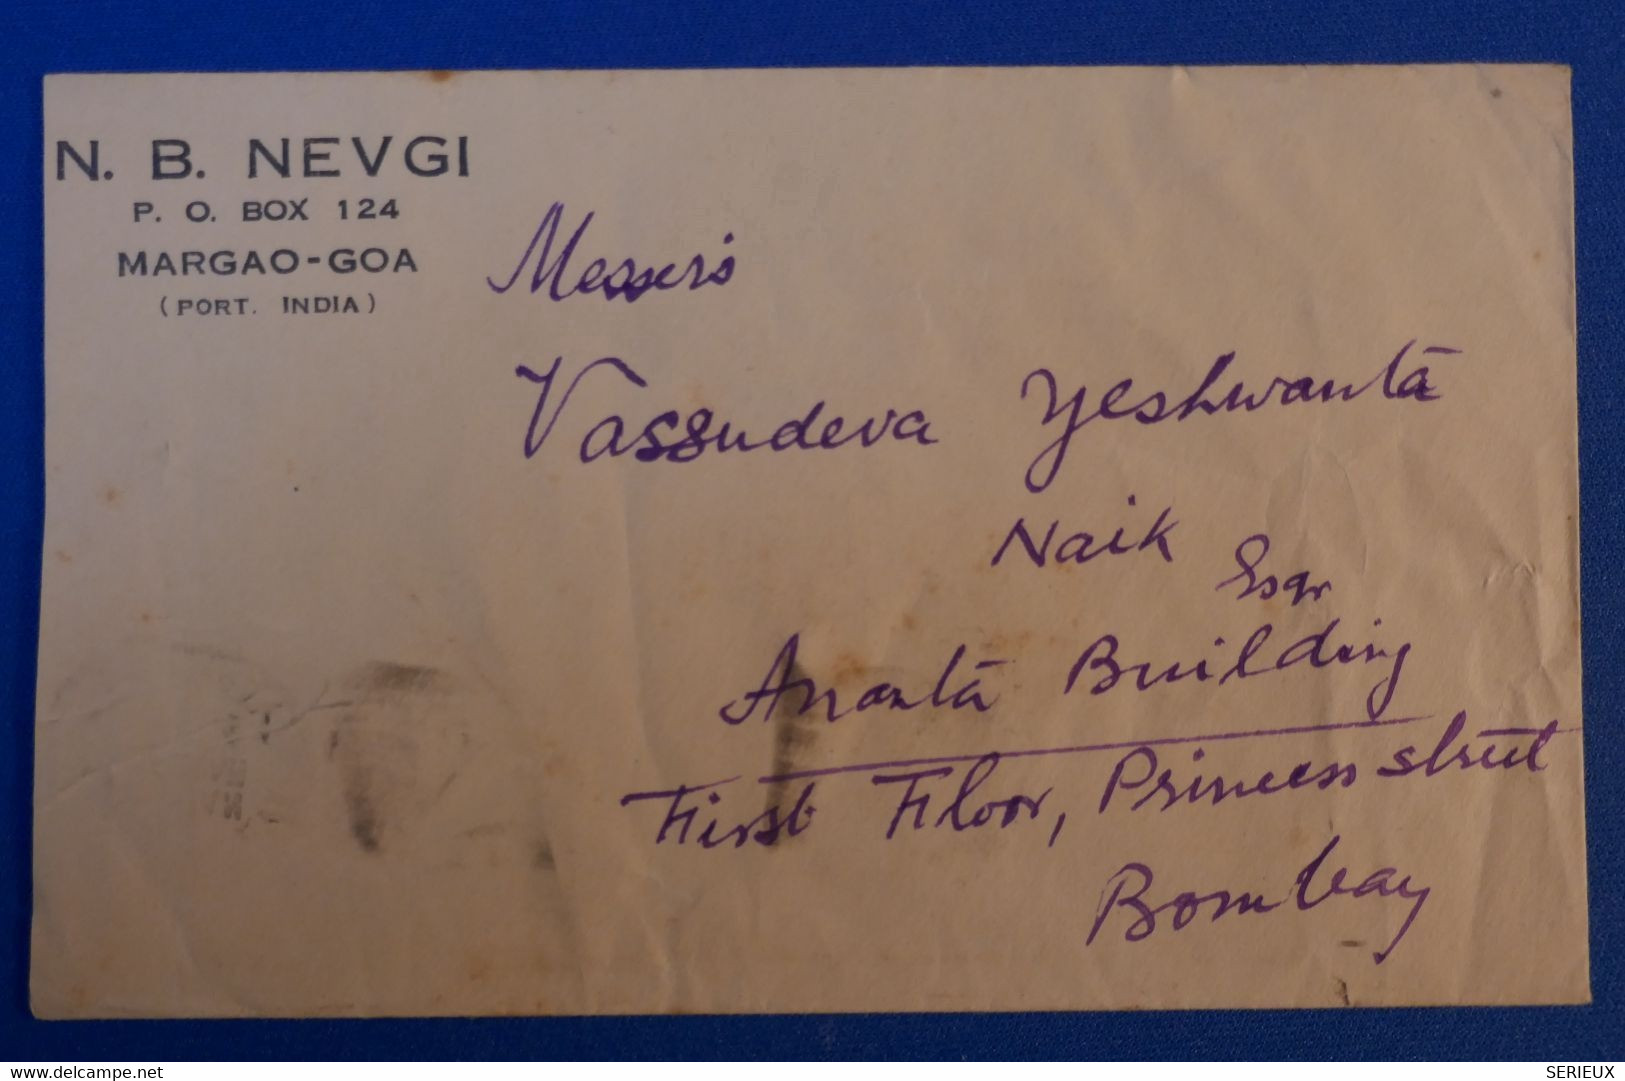 N. B. NEVGI
P. O. BOX 124
MARGAO-GOA
(PORT. INDIA)
Messers
Vassudeva Yeshwanta
Naik Esqr
Ananta Building
First Floor, Princess Street
Bombay
delcampe.net
SERIEUX